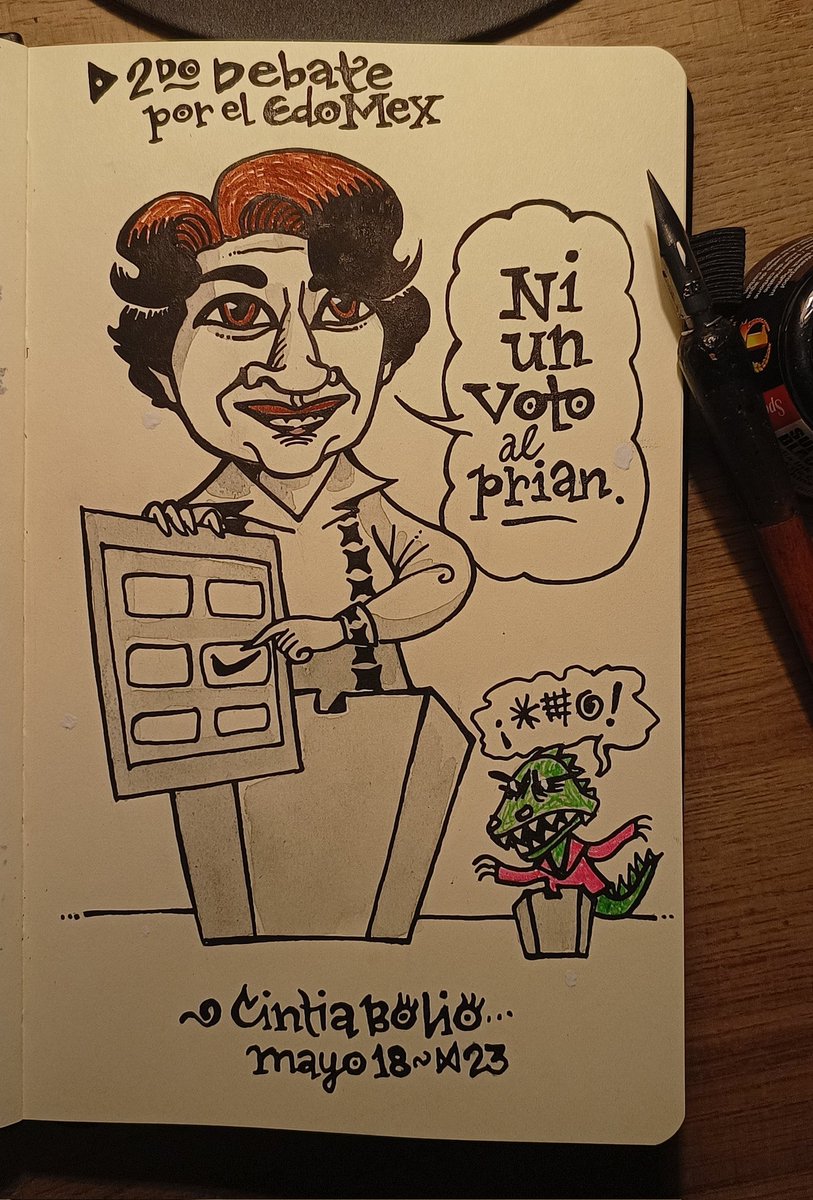 2DO Debate
por el EdoMex
Ni
un
voto
al
prian.
¡*#@!
Cintia Bolio...
mayo 18~23